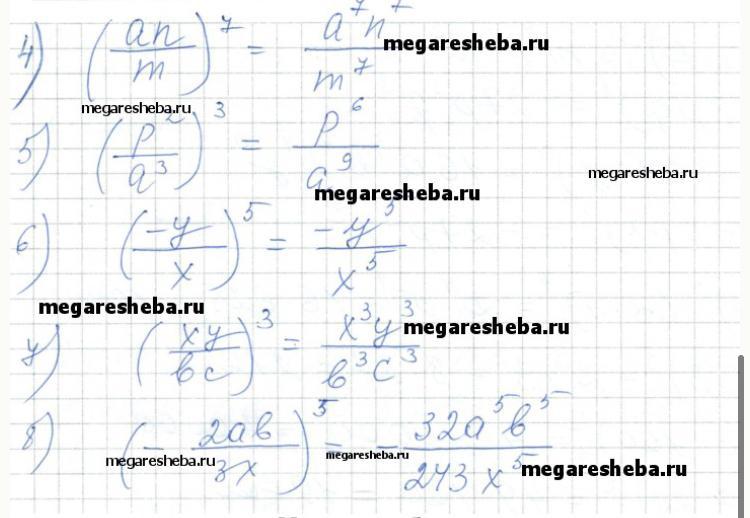 4) (an/m)^7 = a^7n^7/m^7
megaresheba.ru
megaresheba.ru
5) (p^2/a^3)^3 = p^6/a^9
megaresheba.ru
megaresheba.ru
6) (-y/x)^5 = -y^5/x^5
megaresheba.ru
7) (xy/bc)^3 = x^3y^3/b^3c^3
megaresheba.ru
8) (-2ab/3x)^5 = -32a^5b^5/243x^5
megaresheba.ru
megaresheba.ru
megaresheba.ru